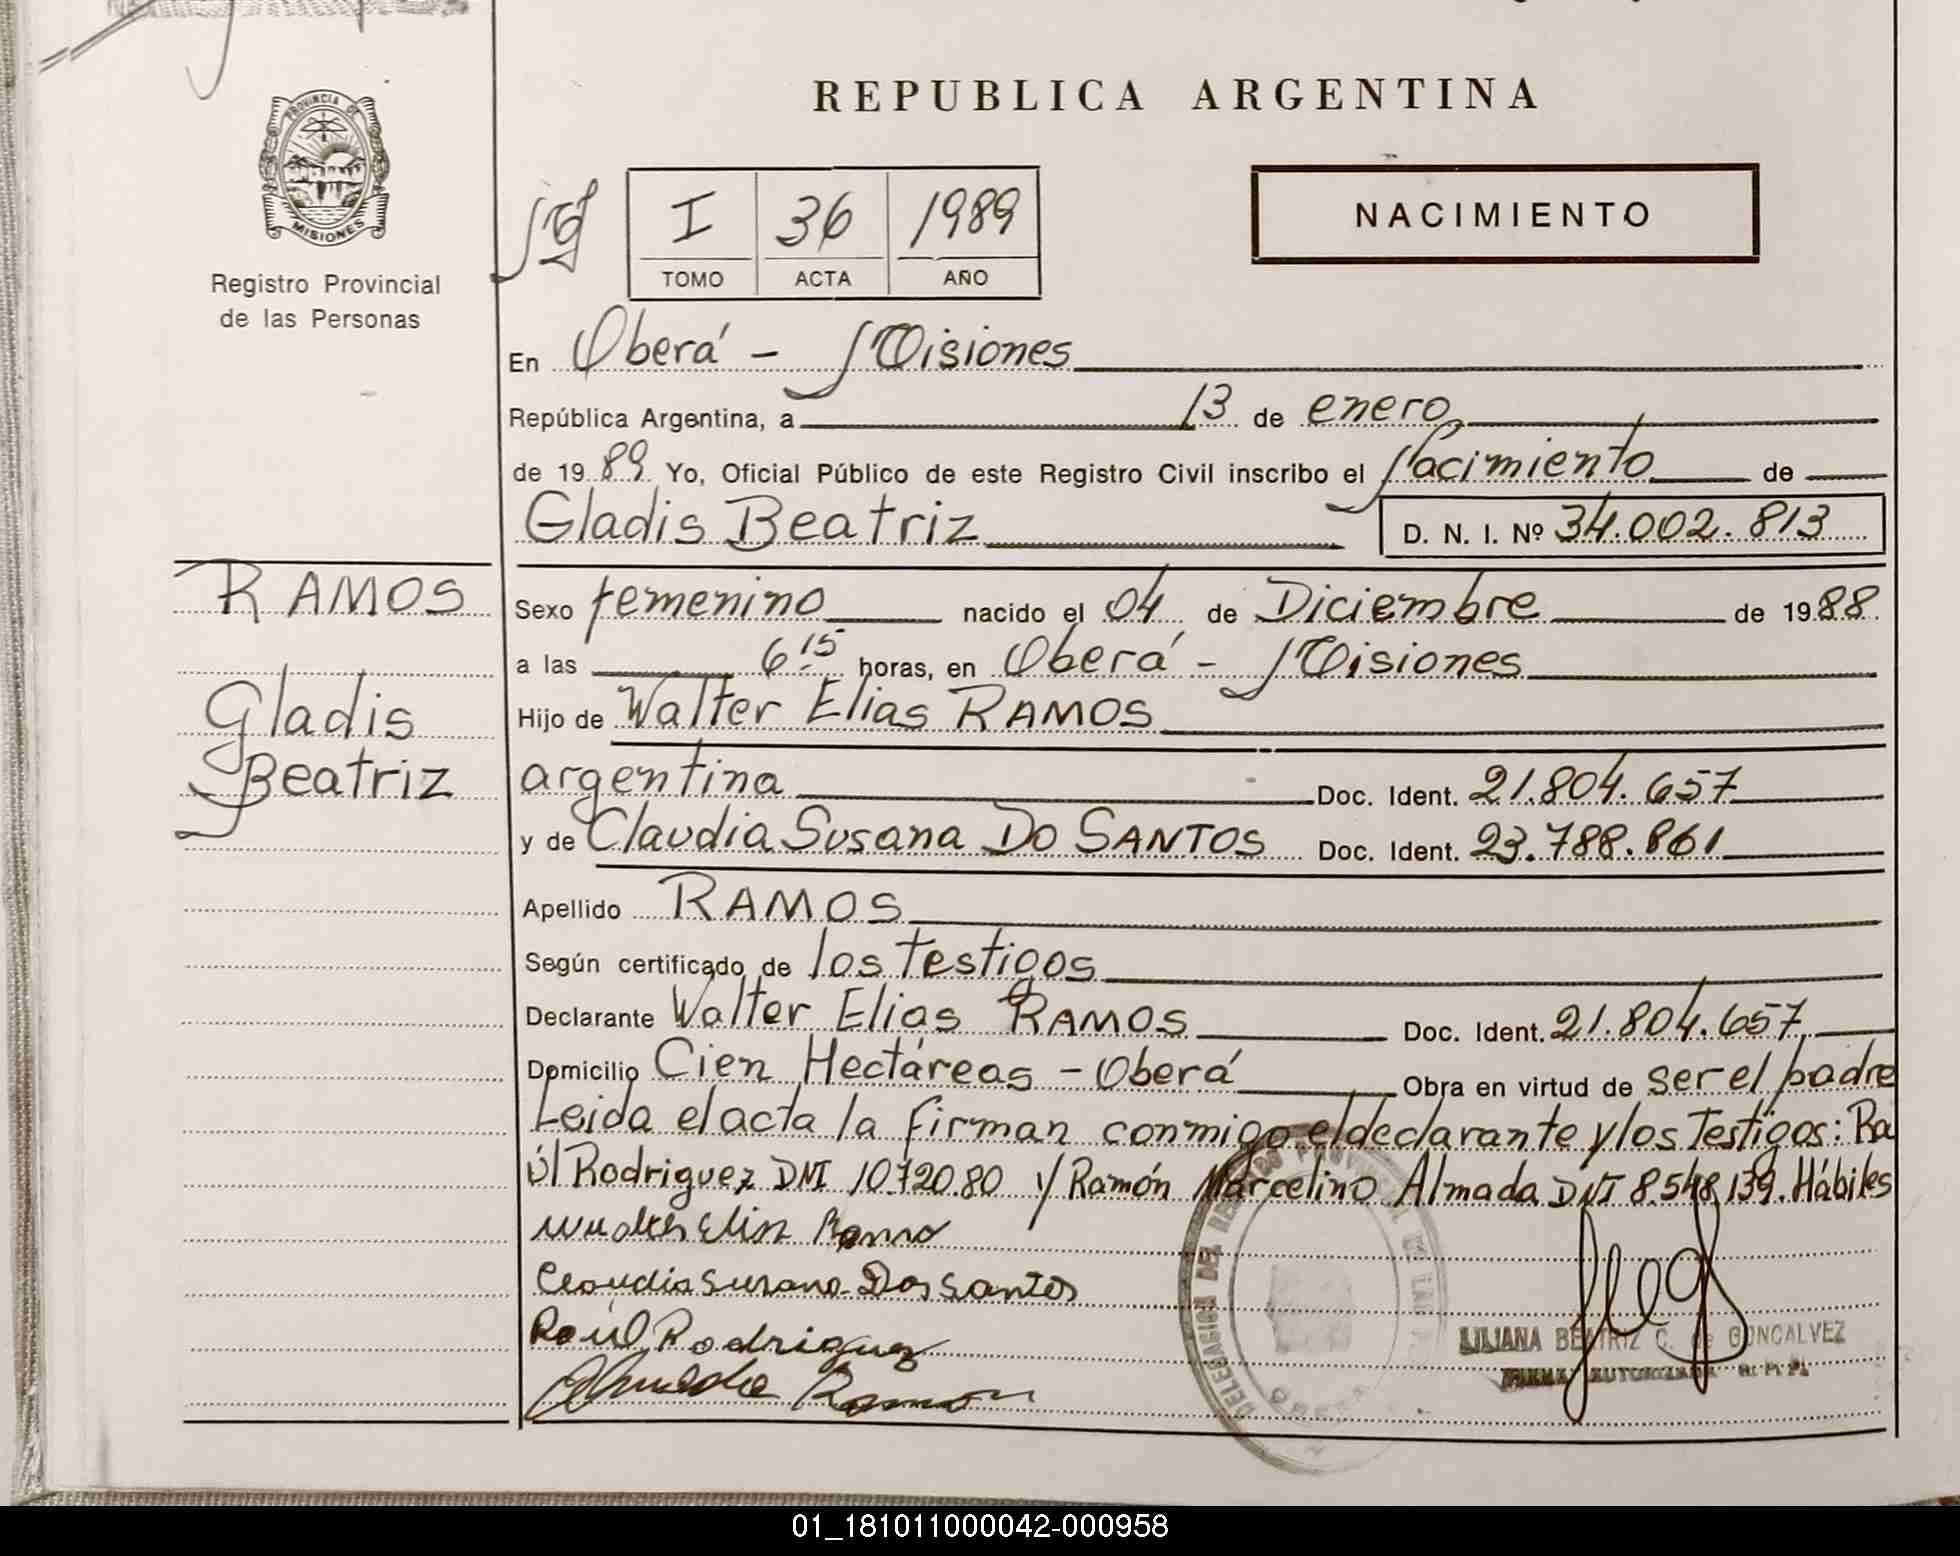 REPUBLICA ARGENTINA
PROVINCIA DE
MISIONES
Registro Provincial
de las Personas
I 36 1989
TOMO ACTA AÑO
NACIMIENTO
En Oberá - Misiones
República Argentina, a 13 de enero
de 1989 Yo, Oficial Público de este Registro Civil inscribo el Nacimiento de
Gladis Beatriz D. N. I. Nº 34.002.813
RAMOS
Gladis
Beatriz
Sexo femenino nacido el 04 de Diciembre de 1988
a las 6.15 horas, en Oberá - Misiones
Hijo de Walter Elias RAMOS
argentina Doc. Ident. 21.804.657
y de Claudia Susana Do SANTOS Doc. Ident. 23.788.861
Apellido RAMOS
Según certificado de los testigos
Declarante Walter Elias RAMOS Doc. Ident. 21.804.657
Domicilio Cien Hectáreas - Oberá Obra en virtud de ser el padre
Leida el acta la firman conmigo el declarante y los testigos: Ra
úl Rodriguez DNI 10.720.80 y Ramón Marcelino Almada DNI 8.548.139. Hábiles
Walter Elias Ramos
Claudia Susana Dos Santos
Raúl Rodriguez
Almada Ramon
DELEGACION DEL REGISTRO PROVINCIAL DE LAS
LILIANA BEATRIZ C. de GONCALVEZ
FIRMA AUTORIZADA R. P. P.
01_181011000042-000958